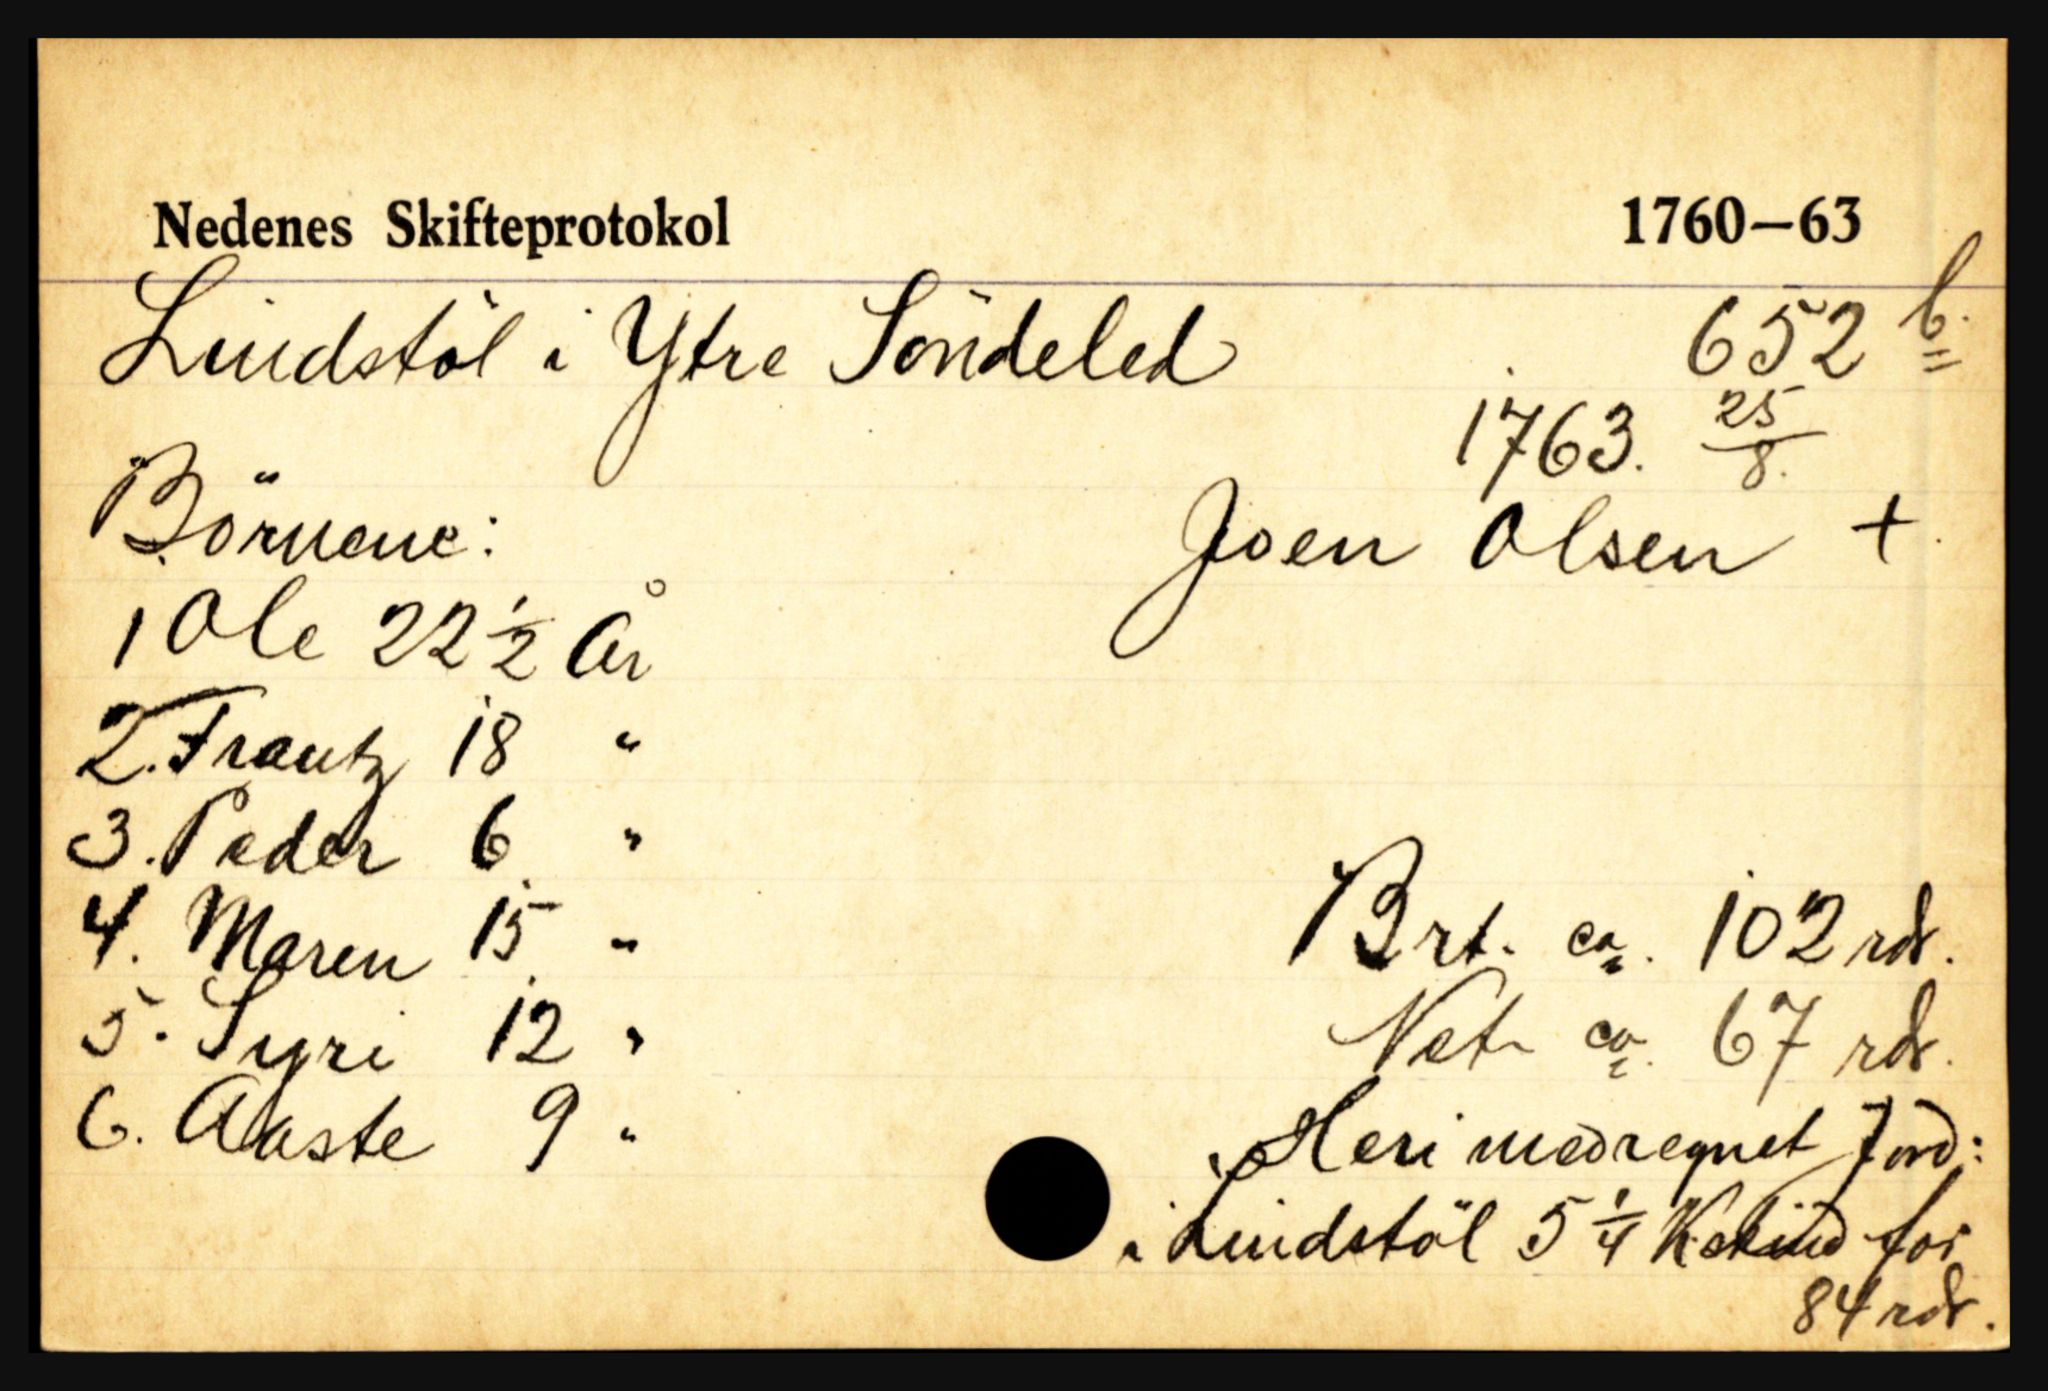 Nedenes Skifteprotokol 1760—63
Lindstöl i Ytre Söndeled 652 b.
1763. 25/8.
Börnene: Joen Olsen +
1 Ole 22 1/2 År
2. Frantz 18 "
3. Peder 6 "
4. Maren 15 " Brt. ca. 102 rdr.
5. Syri 12 " Net ca. 67 rdr.
6. Aaste 9 " Heri medregnet Jord:
i Lindstöl 5 1/4 K skind for
84 rdr.